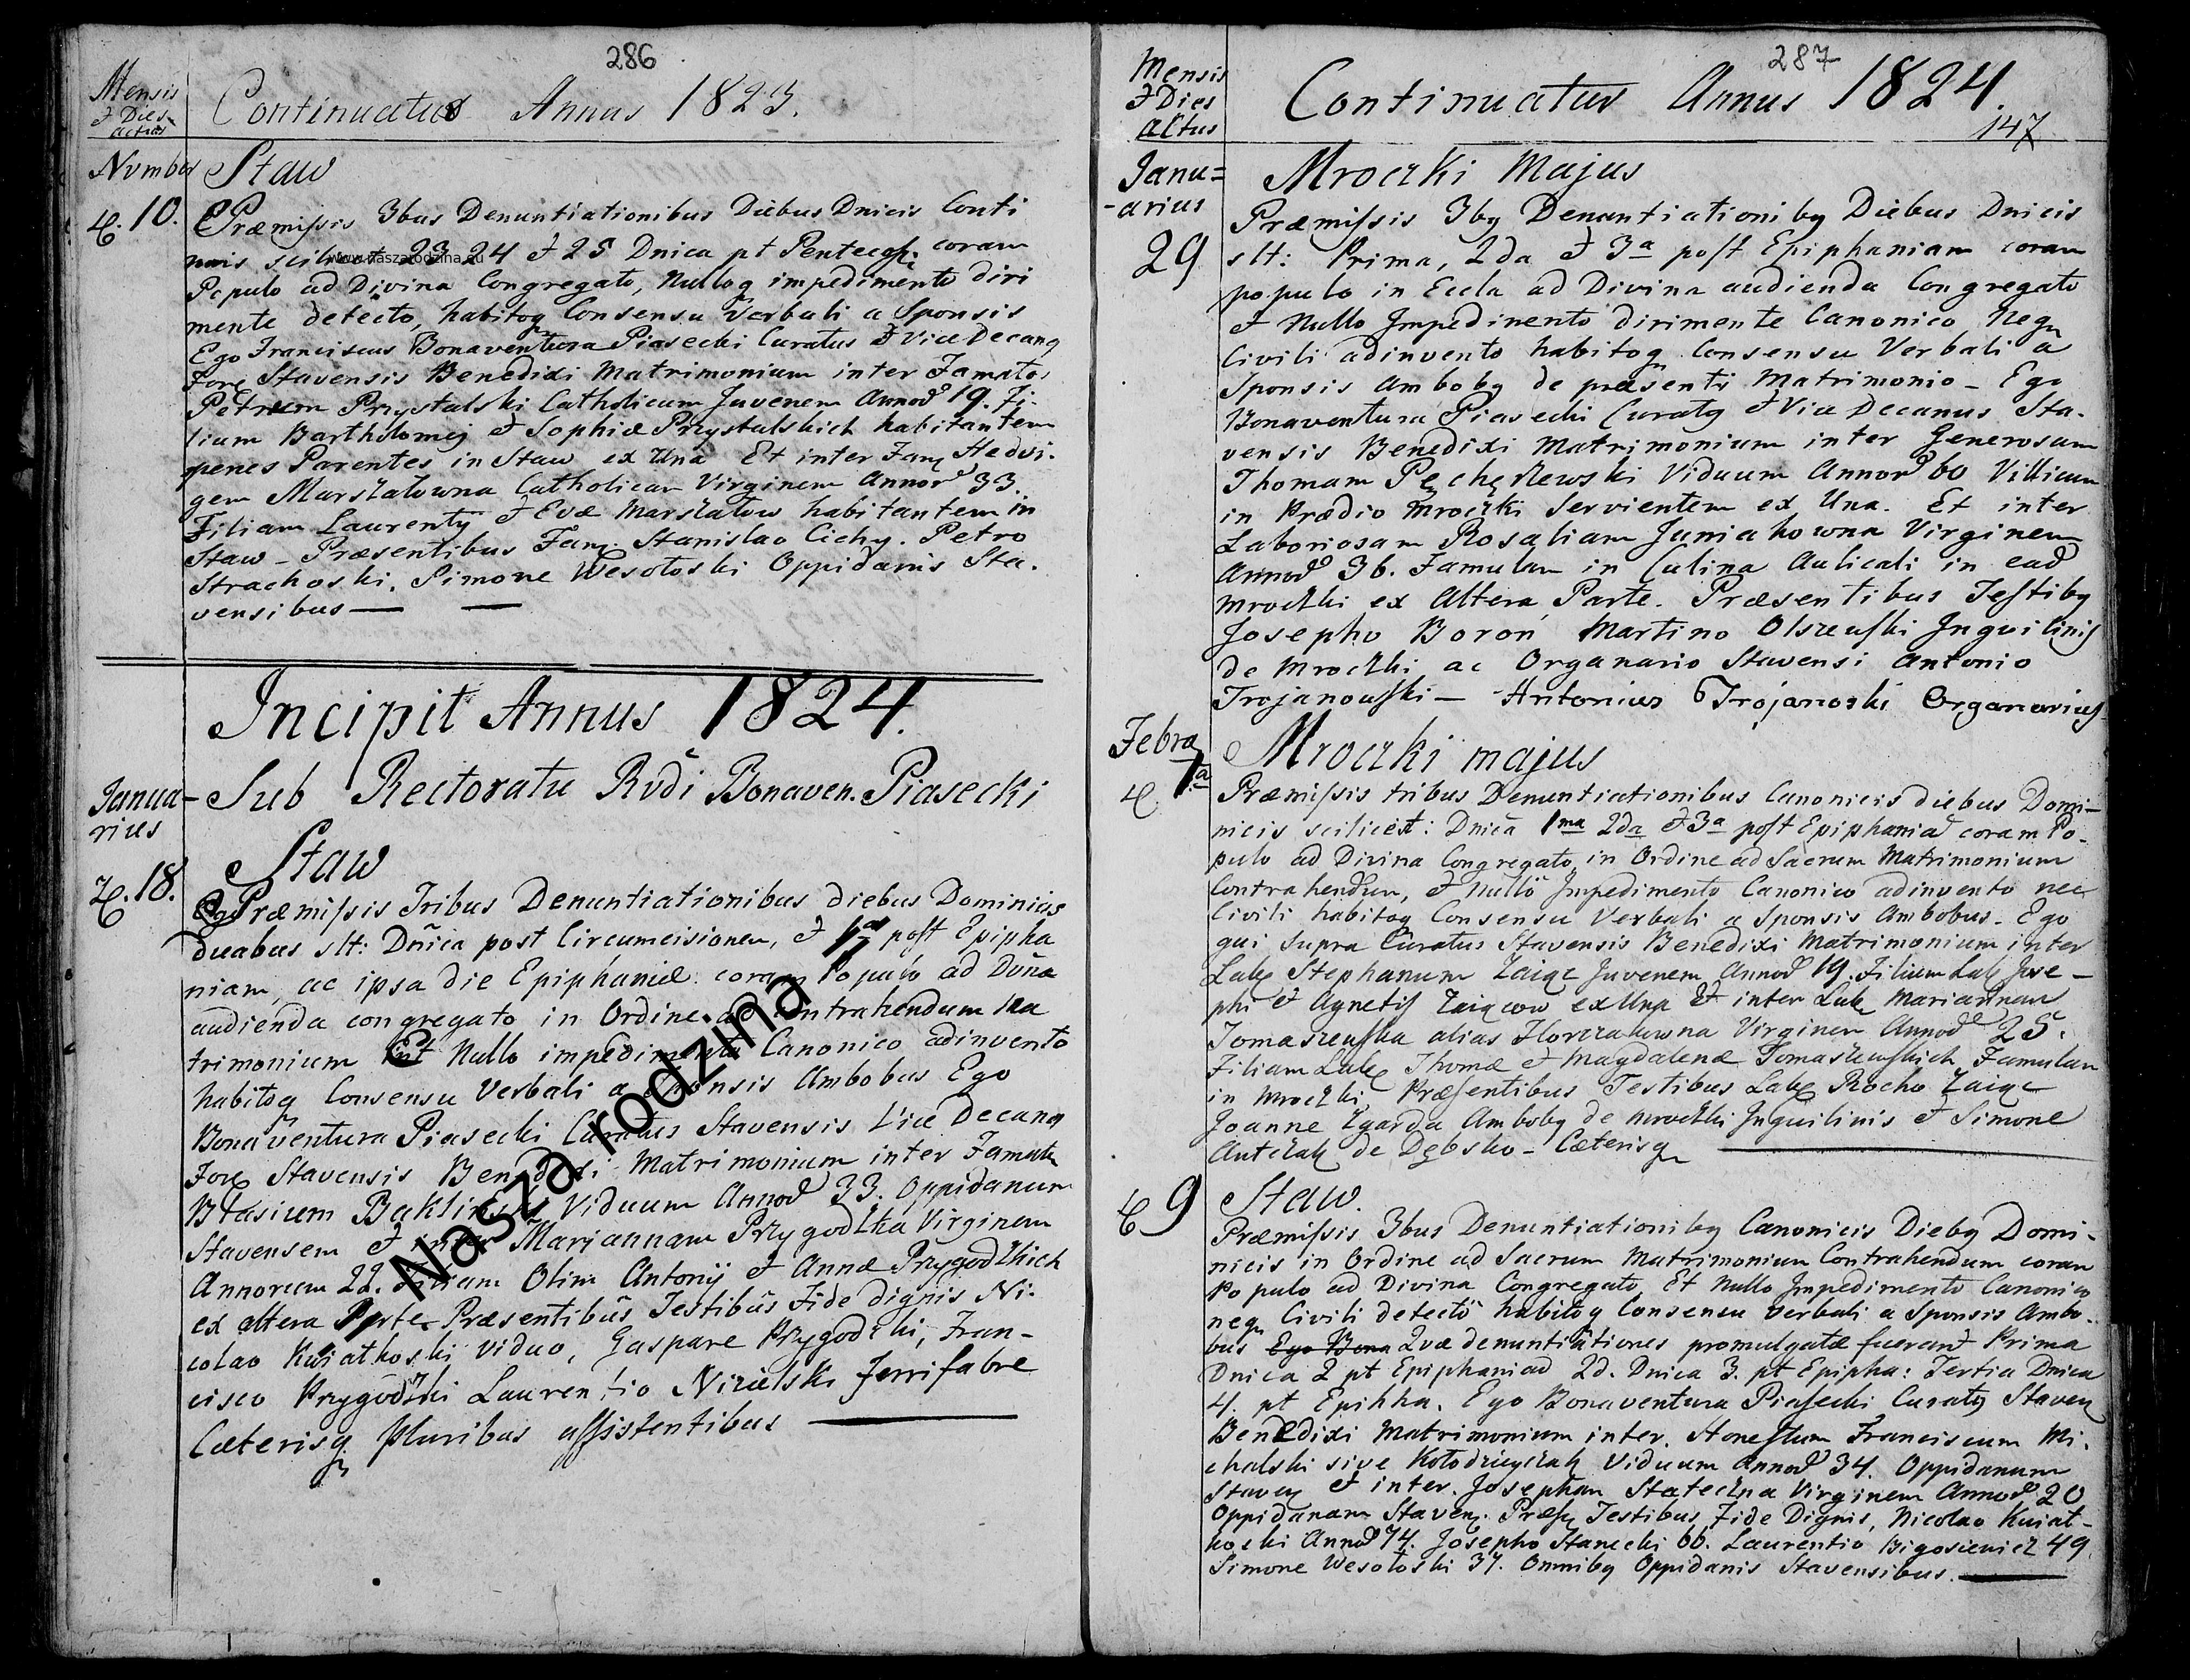 286
Mensis
& Dies
actus
Continuatus Annus 1823.
Novmber
Staw
10.
Præmissis 3bus Denuntiationibus Diebus Dnicis Conti
nuis scilicet 23 24 & 25 Dnica pt Pentecos: coram
www.naszarodzina.eu
Populo ad Divina Congregato, Nulloq impedimento diri
mente detecto, habitoq Consensu Verbali a Sponsis
Ego Franciscus Bonaventura Piasecki Curatus & ViceDecang
Stavensis Benedixi Matrimonium inter Famato
Petrum Przystalski Catholicum Juvenem Annoð 19. Fi-
lium Bartholomej & Sophiæ Przystalskich habitantem
penes Parentes in Staw ex Una Et inter Fam Hedvi-
gem Marszałowna Catholicam Virginem Annor 33.
Filiam Laurenty & Evæ Marszałow habitantem in
Staw – Præsentibus Fam. Stanislao Cichy. Petro
Strachoski. Simone Wesołoski Oppidanis Sta-
vensibus —— ——
Incipit Annus 1824.
Janua-
rius
Sub Rectoratu Rvdi Bonaven. Piasecki
Staw
18.
Præmissis Tribus Denuntiationibus diebus Dominicis
duabus slt: Dnica post Circumcisionem, & 1a post Epipha
niam, ac ipsa die Epiphaniæ coram Populo ad Divina
audienda congregato in Ordine ad Contrahendum Ma
trimonium Et Nullo impedimento Canonico adinvento
habitoq Consensu Verbali a Sponsis Ambobus Ego
Bonaventura Piasecki Curatus Stavensis Vice Decang
Stavensis Benedixi Matrimonium inter Famat
Blasium Baklinski Viduum Annoð 33. Oppidanum
Stavensem & inter Marjannam Przygodzka Virginem
Annorum 22. Filiam Olim Antonij & Annæ Przygodzkich
ex altera Parte Præsentibus Testibus Fide dignis Ni-
colao Kwiatkoski viduo, Gaspare Przygodzki, Fran-
cisco Przygodzki Laurentio Nizielski Ferrifabro
Cæterisq pluribus assistentibus ——
Nasza rodzina
287
Mensis
& Dies
actus
Continuatus Annus 1824.
147
Janu=
-arius
29
Mroczki Majus
Præmissis 3bg Denuntiationibg Diebus Dnicis
slt: Prima, 2da & 3a post Epiphaniam coram
populo in Eccla ad Divina audienda Congregato
& Nullo Impedimento dirimente Canonico Neq
Civili adinvento habitoq Consensu Verbali a
Sponsis Ambobg de præsenti Matrimonio – Ego
Bonaventura Piasecki Curatg & Vice Decanus Sta-
vensis Benedixi Matrimonium inter Generosum
Thomam Pęchęrzewski Viduum Annorð 60 Villicum
in Prædio Mroczki Servientem ex Una. Et inter
Laboriosam Rosaliam Juniakowna Virginem
Annoð 36. Famulam in Culina Aulicali in eað
Mroczki ex Altera Parte. Præsentibus Testibg
Josepho Boroń Martino Olszeuski Inquilinis
de Mroczki ac Organario Stavensi Antonio
Trojanouski – Antonius Trojanoski Organarius
Febra
1a
Mroczki majus
Præmissis tribus Denuntiationibus Canonicis diebus Domi-
nicis scilicet: Dnica 1ma 2da & 3a post Epiphaniað coram Po-
pulo ad Divina Congregato, in Ordine ad Sacrum Matrimonium
Contrahendum, & Nullo Impedimento Canonico adinvento nec
Civili habitoq Consensu Verbali a Sponsis Ambobus – Ego
qui Supra Curatus Stavensis Benedixi Matrimonium inter
Lab Stephanum Zaiąc Juvenem Annoð 19. Filium Lab Jose-
phi & Agnetis Zaiącow ex Una & inter Lab Mariannam
Tomaszeuska alias Florczakowna Virginem Annoð 25.
Filiam Lab Thomæ & Magdalenæ Tomaszeuskich Famulam
in Mroczki Præsentibus Testibus Lab Rocho Zaiąc
Joanne Zgarda Ambobg de Mroczki Inquilinis & Simone
Antczak de Dębsko – Cæterisq ——
9
Staw.
Præmissis 3bus Denuntiationibg Canonicis Diebg Domi-
nicis in Ordine ad Sacrum Matrimonium Contrahendum coram
Populo ad Divina Congregato, Et Nullo Impedimento Canonico
neq Civili detecto habitoq Consensu Verbali a Sponsis Ambo-
bus Ego Bona Quæ denuntiationes promulgatæ fuerant Prima
Dnica 2 pt Epiphaniað 2d. Dnica 3. pt Epipha: Tertia Dnica
4. pt Epihha. Ego Bonaventura Piasecki Curatg Staven
Benedixi Matrimonium inter Honestum Franciscum Mi-
chalski sive Kołodzieyczak Viduum Annoð 34. Oppidanum
Staven & inter Josepham Stateczna Virginem Annoð 20
Oppidanam Staven. Præs Testibus Fide Dignis, Nicolao Kwiat-
koski Annoð 74. Josepho Stanecki 66. Laurentio Bigosiewicz 49
Simone Wesołoski 37. Omnibg Oppidanis Stavensibus. ——